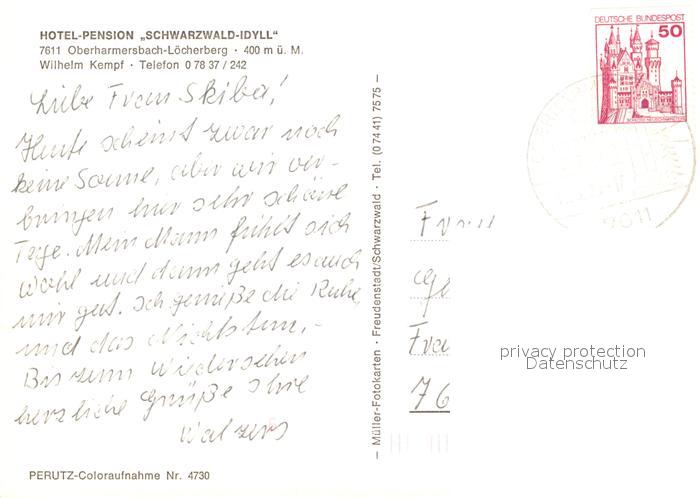 HOTEL-PENSION „SCHWARZWALD-IDYLL"
7611 Oberharmersbach-Löcherberg · 400 m ü. M.
Wilhelm Kempf · Telefon 0 78 37 / 242
Liebe Frau Skiba!
Heute scheint zwar noch
keine Sonne, aber wir ver-
bringen hier sehr schöne
Tage. Mein Mann fühlt sich
wohl und dann geht es auch
mir gut. Ich genieße die Ruhe,
und das Nichtstun,-
Bis zum Wiedersehen
herzliche Grüße Ihre
Walzers
PERUTZ-Coloraufnahme Nr. 4730
— Müller-Fotokarten · Freudenstadt/Schwarzwald · Tel. (0 74 41) 75 75 —
DEUTSCHE BUNDESPOST
50
7611
Frau
Fra
76
privacy protection
Datenschutz